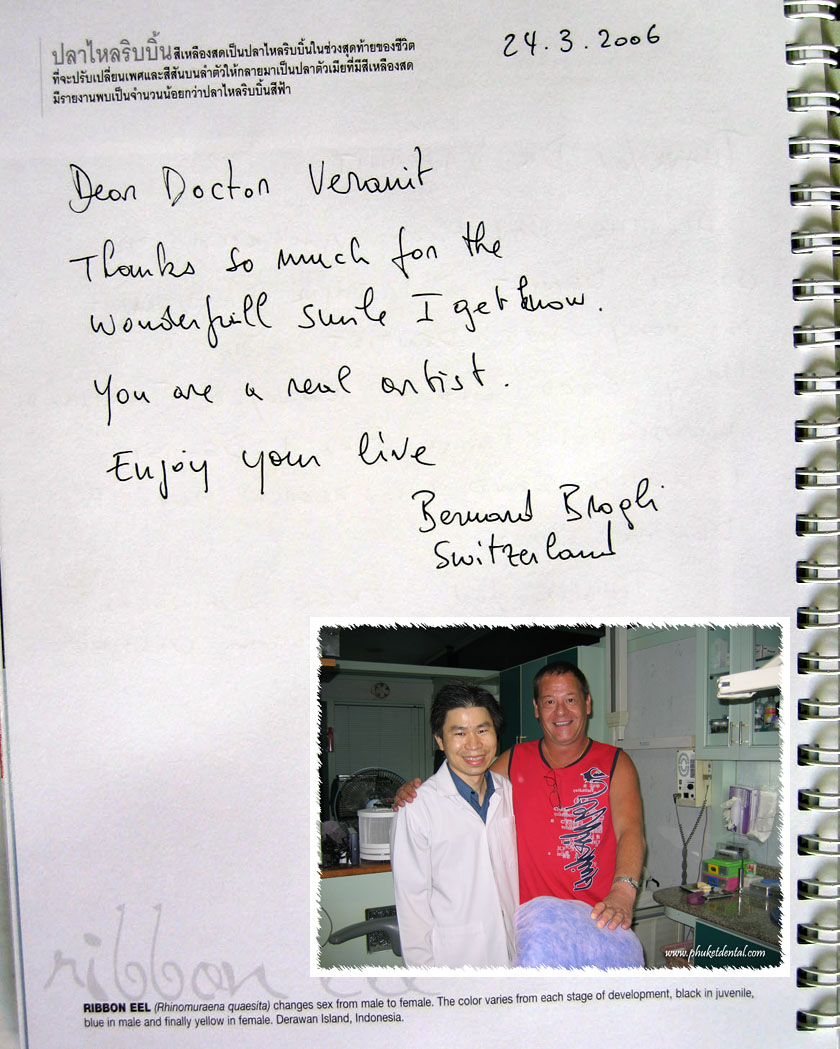 ปลาไหลริบบิ้น สีเหลืองสดเป็นปลาไหลริบบิ้นในช่วงสุดท้ายของชีวิต
ที่จะปรับเปลี่ยนเพศและสีสันบนลำตัวให้กลายมาเป็นปลาตัวเมียที่มีสีเหลืองสด
มีรายงานพบเป็นจำนวนน้อยกว่าปลาไหลริบบิ้นสีฟ้า
24.3.2006
Dear Doctor Veranit
Thanks so much for the
wonderfull smile I get know.
You are a real artist.
Enjoy your live
Bernard Brogli
Switzerland
www.phuketdental.com
ribbon eel
RIBBON EEL (Rhinomuraena quaesita) changes sex from male to female. The color varies from each stage of development, black in juvenile,
blue in male and finally yellow in female. Derawan Island, Indonesia.